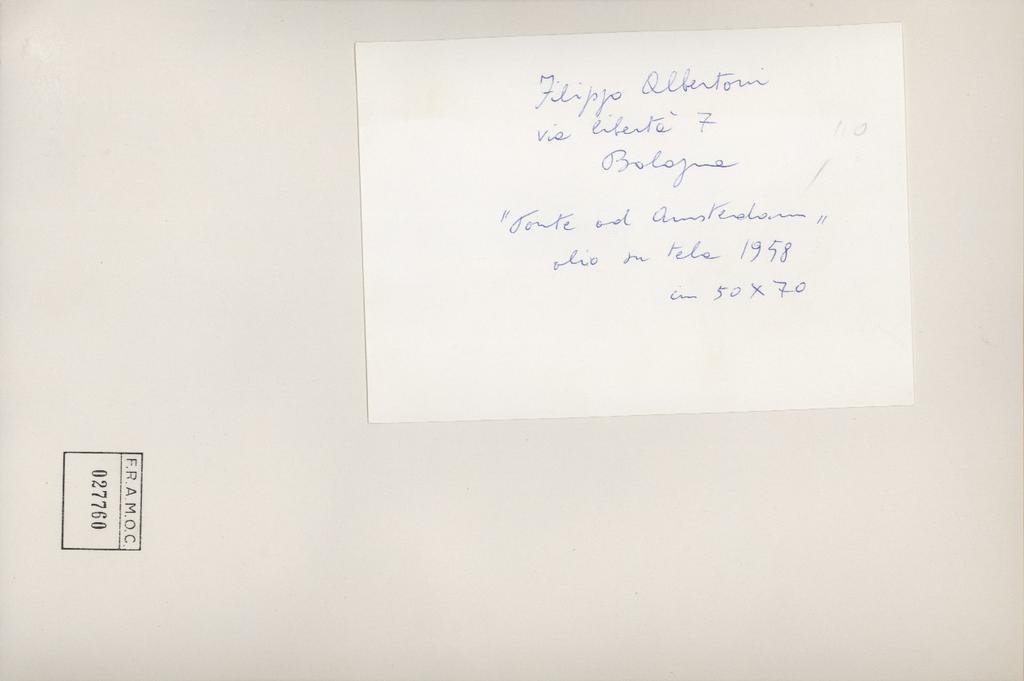 Filippo Albertoni
via libertà 7
Bologna
"Ponte ad Amsterdam"
olio su tela 1958
cm 50 X 70
110
F.R.A.M.O.C.
027760